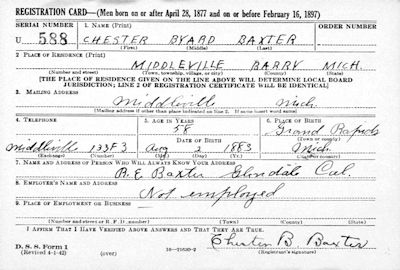 REGISTRATION CARD—(Men born on or after April 28, 1877 and on or before February 16, 1897)
SERIAL NUMBER 1. NAME (Print) ORDER NUMBER
U 588 CHESTER BYARD BAXTER
(First) (Middle) (Last)
2. PLACE OF RESIDENCE (Print)
MIDDLEVILLE BARRY MICH.
(Number and street) (Town, township, village, or city) (County) (State)
[THE PLACE OF RESIDENCE GIVEN ON THE LINE ABOVE WILL DETERMINE LOCAL BOARD
JURISDICTION; LINE 2 OF REGISTRATION CERTIFICATE WILL BE IDENTICAL]
3. MAILING ADDRESS
Middleville Mich.
(Mailing address if other than place indicated on line 2. If same insert word same)
4. TELEPHONE 5. AGE IN YEARS 6. PLACE OF BIRTH
58 Grand Rapids
DATE OF BIRTH (Town or county)
Middleville 133F3 Aug 2 1883 Mich.
(Exchange) (Number) (Mo.) (Day) (Yr.) (State or country)
7. NAME AND ADDRESS OF PERSON WHO WILL ALWAYS KNOW YOUR ADDRESS
B. E. Baxter Glendale Cal.
8. EMPLOYER'S NAME AND ADDRESS
Not employed
9. PLACE OF EMPLOYMENT OR BUSINESS
(Number and street or R. F. D. number) (Town) (County) (State)
I AFFIRM THAT I HAVE VERIFIED ABOVE ANSWERS AND THAT THEY ARE TRUE.
D. S. S. Form 1 Chester B. Baxter
(Revised 4-1-42) (over) (Registrant's signature)